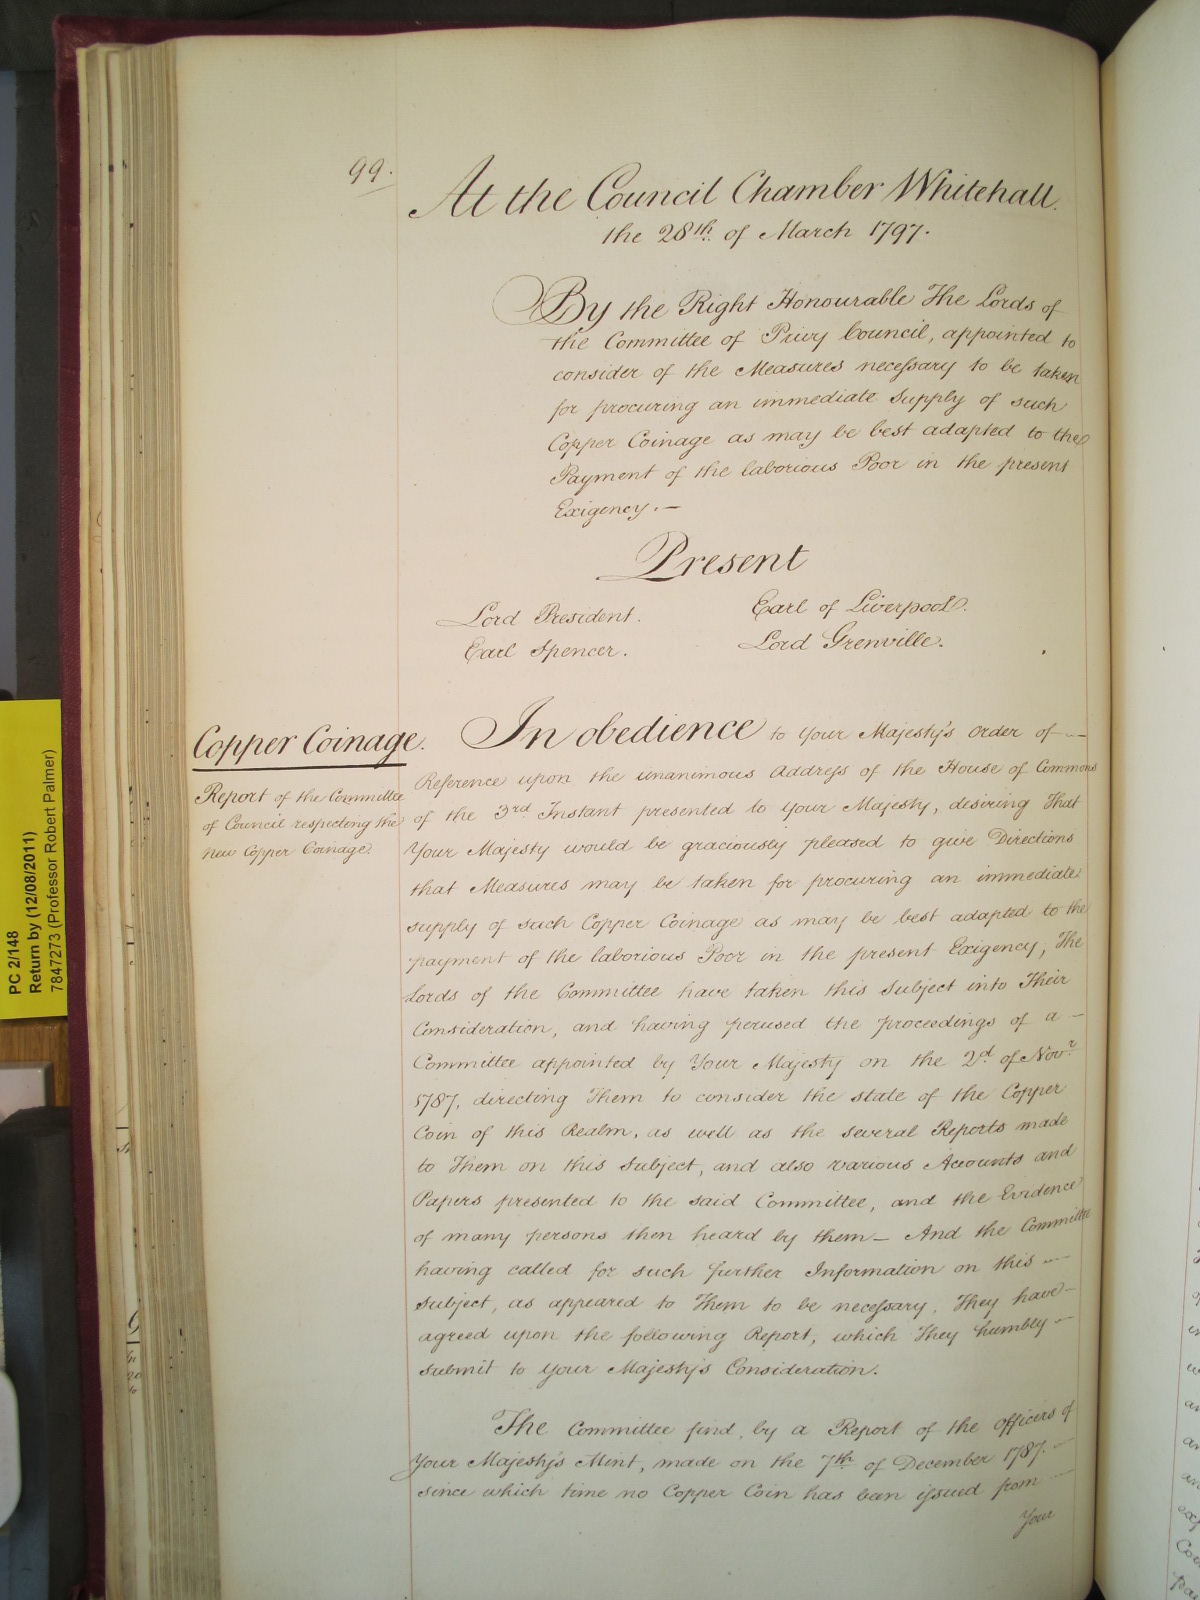 99.
At the Council Chamber Whitehall.
the 28th. of March 1797.
By the Right Honourable The Lords of
the Committee of Privy Council, appointed to
consider of the Measures necessary to be taken
for procuring an immediate Supply of such
Copper Coinage as may be best adapted to the
Payment of the laborious Poor in the present
Exigency. —
Present
Lord President.
Earl Spencer.
Earl of Liverpool.
Lord Grenville.
Copper Coinage.
Report of the Committee
of Council respecting the
new Copper Coinage.
In obedience to Your Majesty's order of —
Reference upon the unanimous Address of the House of Commons
of the 3rd Instant presented to Your Majesty, desiring That
Your Majesty would be graciously pleased to give Directions
that Measures may be taken for procuring an immediate
supply of such Copper Coinage as may be best adapted to the
payment of the laborious Poor in the present Exigency, The
Lords of the Committee have taken this Subject into Their
Consideration, and having perused the proceedings of a —
Committee appointed by Your Majesty on the 2d. of Novr.
1787, directing Them to consider the state of the Copper
Coin of this Realm, as well as the several Reports made
to Them on this Subject, and also various Accounts and
Papers presented to the said Committee, and the Evidence
of many persons then heard by them — And the Committee
having called for such further Information on this —
Subject, as appeared to Them to be necessary, They have —
agreed upon the following Report, which They humbly —
submit to Your Majesty's Consideration.
The Committee find, by a Report of the Officers of
Your Majesty's Mint, made on the 7th. of December 1787. —
since which time no Copper Coin has been issued from —
Your
PC 2/148
Return by (12/08/2011)
7847273 (Professor Robert Palmer)